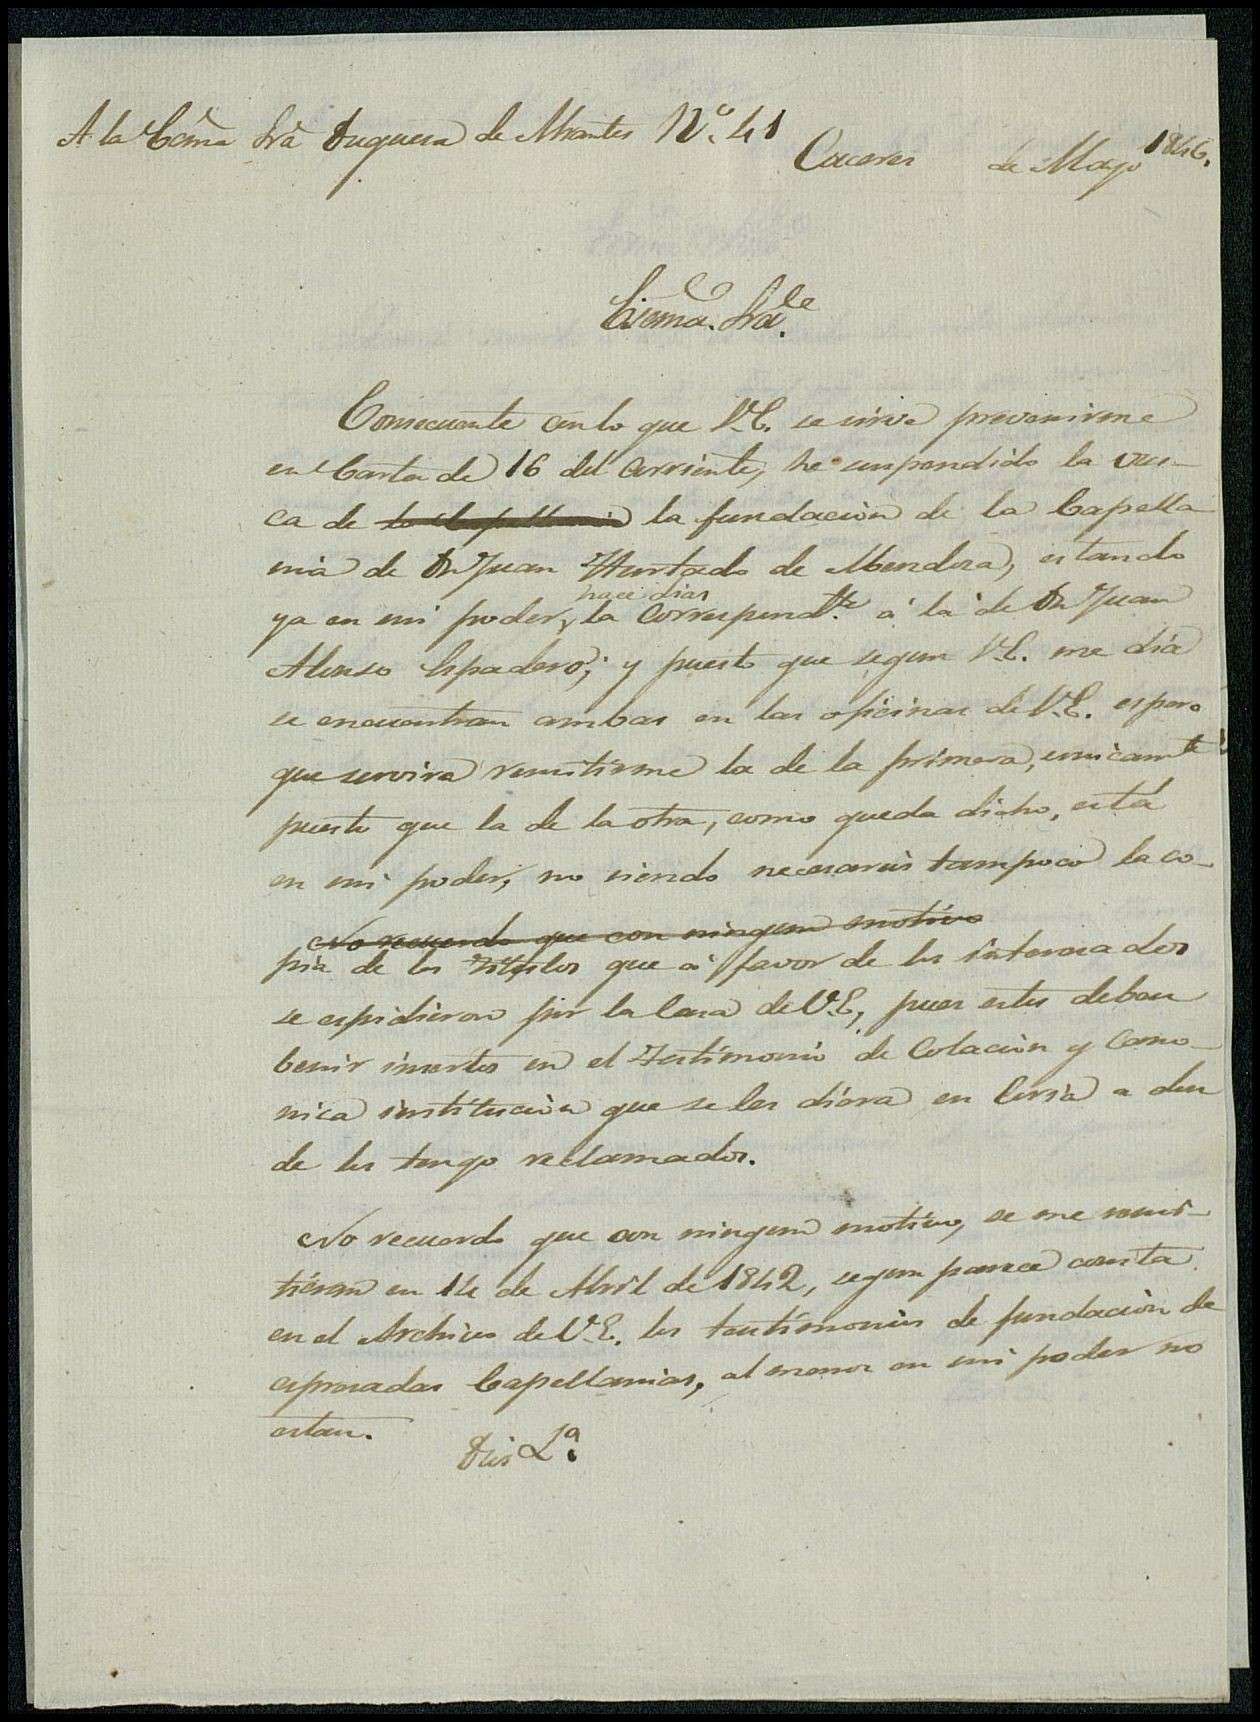 A la Ecma Srã Duquesa de Abrantes Nº. 41
Caceres de Mayo 1846.
Escma. Sra.
Consecuente con lo que V.E. se sirve prevenirme
en Carta de 16 del corriente, he suspendido la bus-
ca de la Capellania la fundacion de la Capella
nia de Dn Juan Hurtado de Mendoza, estando
hace dias
ya en mi poder, la correspondte. á la de Dn Juan
Alonso Espadero; y puesto que segun V.E. me dia
se encuentran ambas en las oficinas de V.E. espero
que servira remitirme la de la primera, unicamte
puesto que la de la otra, como queda dicho, está
en mi poder, no siendo necesarias tampoco la co-
No recuerdo que con ningun motivo
pia de los titulos que á favor de los interesados
se espidieron por la Casa de V.E, pues estos deben
benir insertos en el Testimonio de Colacion y Cano-
nica institucion que se les diera en Coria a don
de los tengo reclamados.
No recuerdo que con ningun motivo, se me remi-
tieran en 14 de Abril de 1842, segun parece consta
en el Archivo de V.E. los testimonios de fundacion de
espresadas Capellanias, al menos en mi poder no
estan.
Dios Lª.